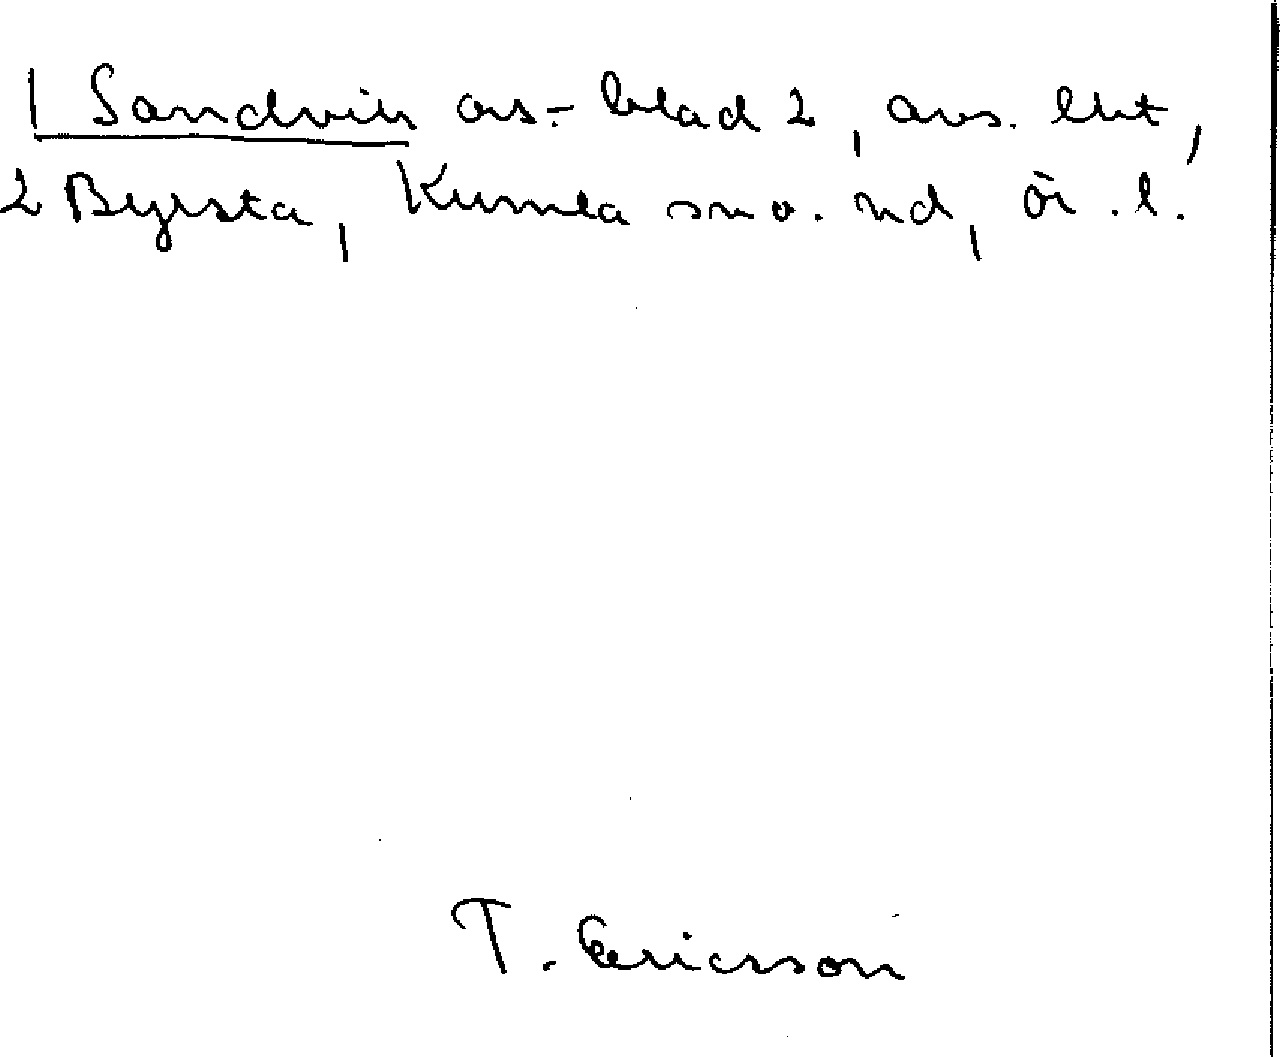 1 Sandvik ars.-blad 2, avs. lht,
2 Byrsta, Kumla sn o. hd, Ör. l.
T. Ericsson